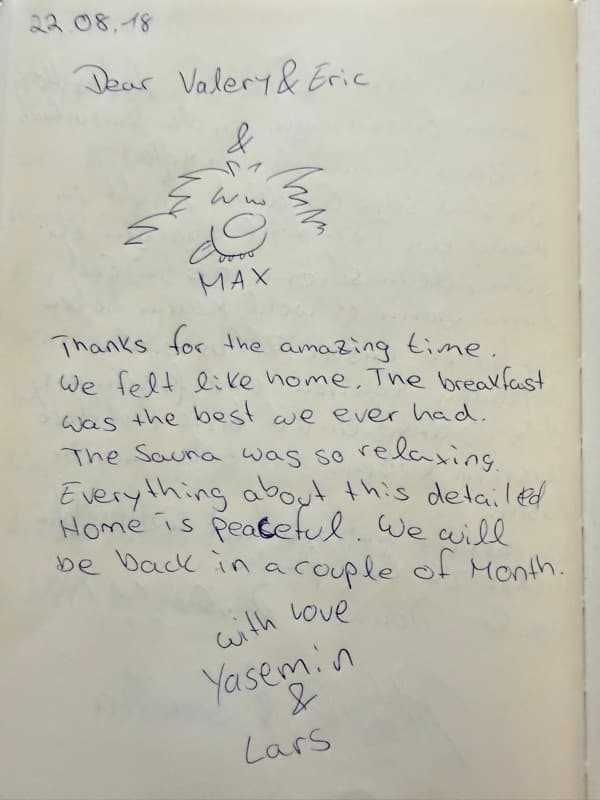 22.08.18
Dear Valery & Eric
&
MAX
Thanks for the amazing time.
We felt like home. The breakfast
was the best we ever had.
The Sauna was so relaxing.
Everything about this detailed
Home is peaceful. We will
be back in a couple of Month.
with love
Yasemin
&
Lars